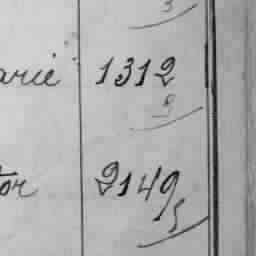 3
arie 1312
9
tor 2149
5